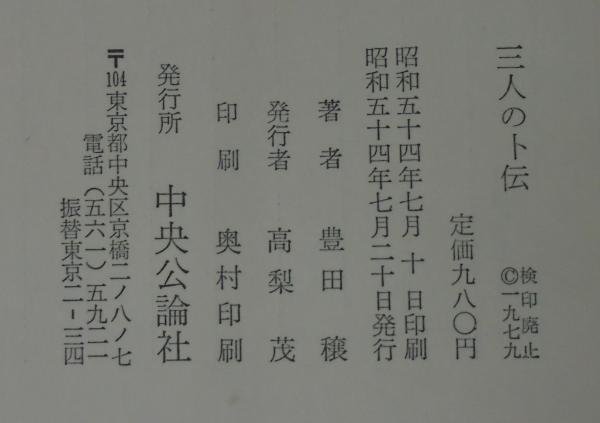 三人の卜伝
検印廃止
©一九七九
定価九八〇円
昭和五十四年七月十日印刷
昭和五十四年七月二十日発行
著者 豊田穣
発行者 高梨茂
印刷 奥村印刷
発行所 中央公論社
〒104東京都中央区京橋二ノ八ノ七
電話(五六一)五九二一
振替東京二-三四